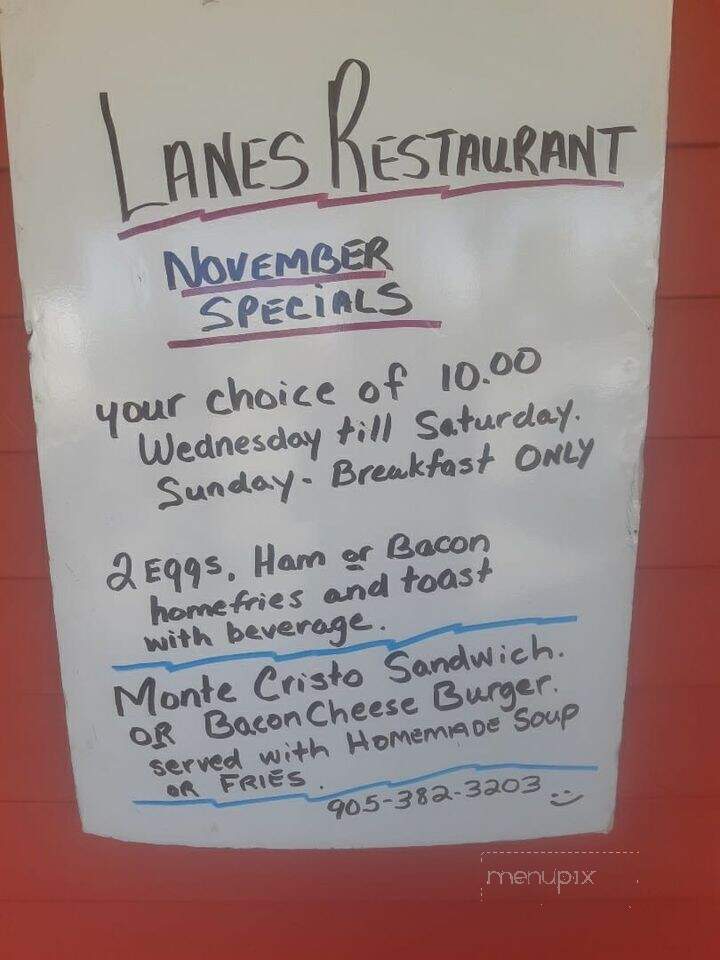 LANES RESTAURANT
NOVEMBER
SPECIALS
your choice of 10.00
Wednesday till Saturday.
Sunday - Breakfast ONLY
2 Eggs, Ham or Bacon
homefries and toast
with beverage.
Monte Cristo Sandwich.
OR Bacon Cheese Burger.
served with HOMEMADE Soup
OR FRIES.
905-382-3203
menupix